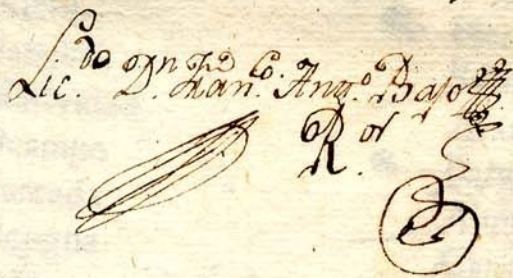 Lic.do D.n Fran.co Ant.o Bajo
R.or